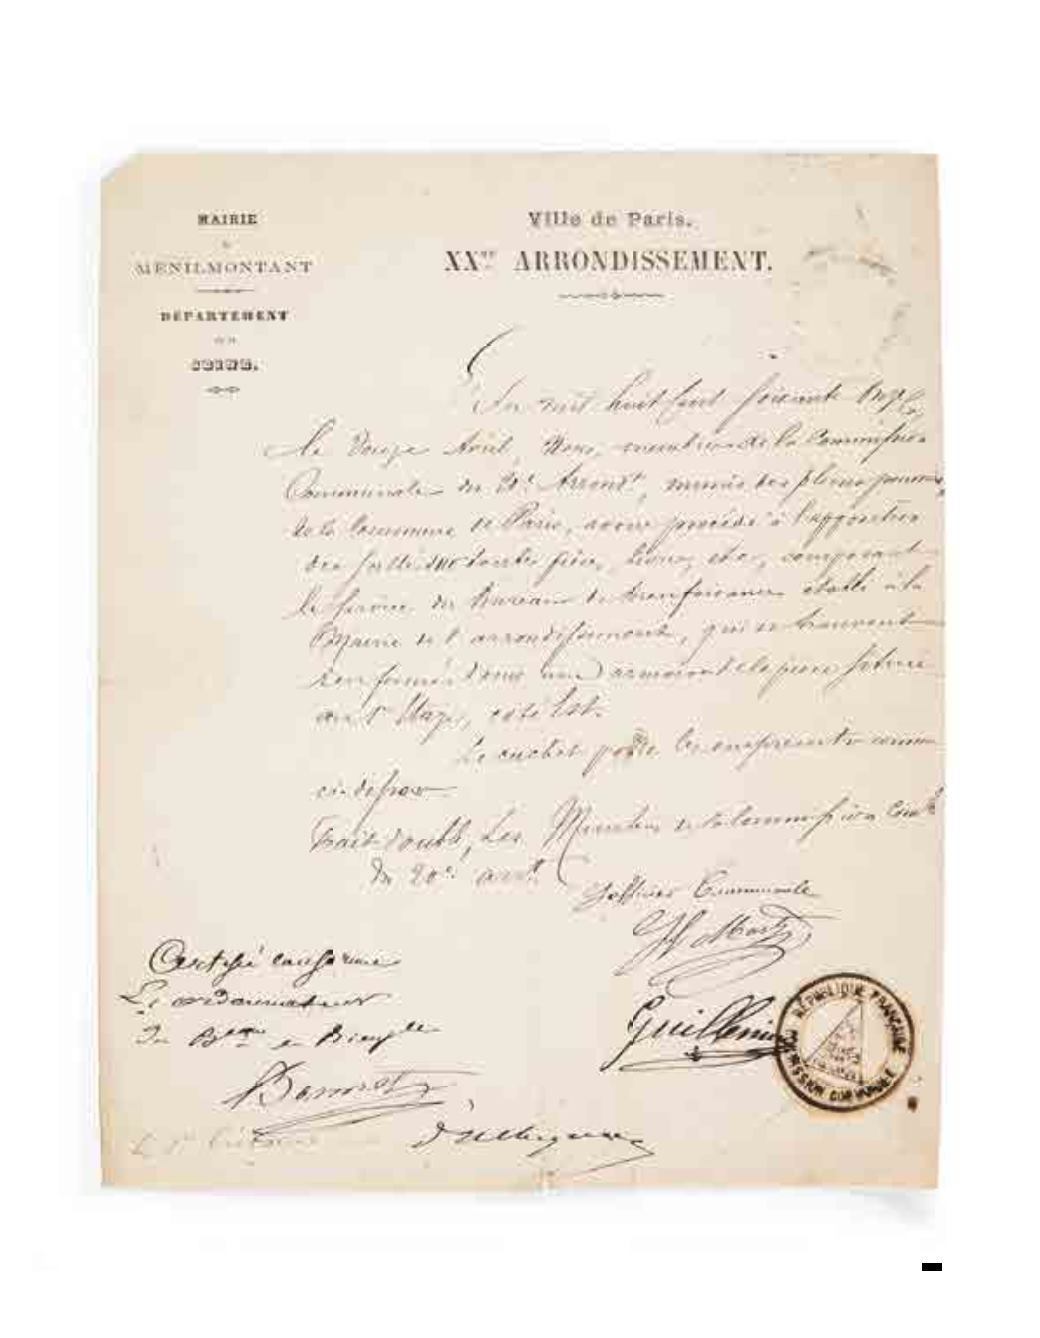 MAIRIE
MÉNILMONTANT
DÉPARTEMENT
SEINE.
Ville de Paris.
XXme ARRONDISSEMENT.
L'an mil huit cent soixante Onze
le Douze Avril, Nous, membres de la Commission
Communale du 20e Arrondt, munis des pleins pouvoirs
de la Commune de Paris, avons procédé à l'apposition
des scellés sur toutes pièces, livres, etc., composant
le service du Bureau de bienfaisance établi à la
Mairie de l'arrondissement, qui se trouvent
renfermés dans une armoire de la pièce située
au 1er Etage, côté Est.
Le cachet porte les empreintes comme
ci-dessous
Fait double, Les Membres de la Commission Comle
du 20e arrt.
Communale
Guillemin
RÉPUBLIQUE FRANÇAISE
COMMISSION COMMUNALE
Certifié conforme
L'ordonnateur
Du Beau